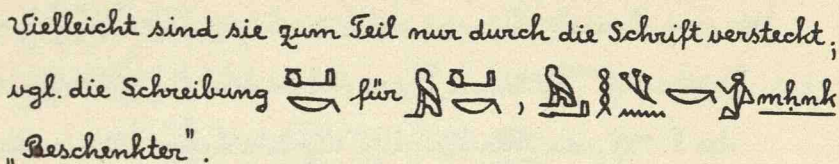 Vielleicht sind sie zum Teil nur durch die Schrift versteckt;
vgl. die Schreibung für , mḥnk
„Beschenkter".